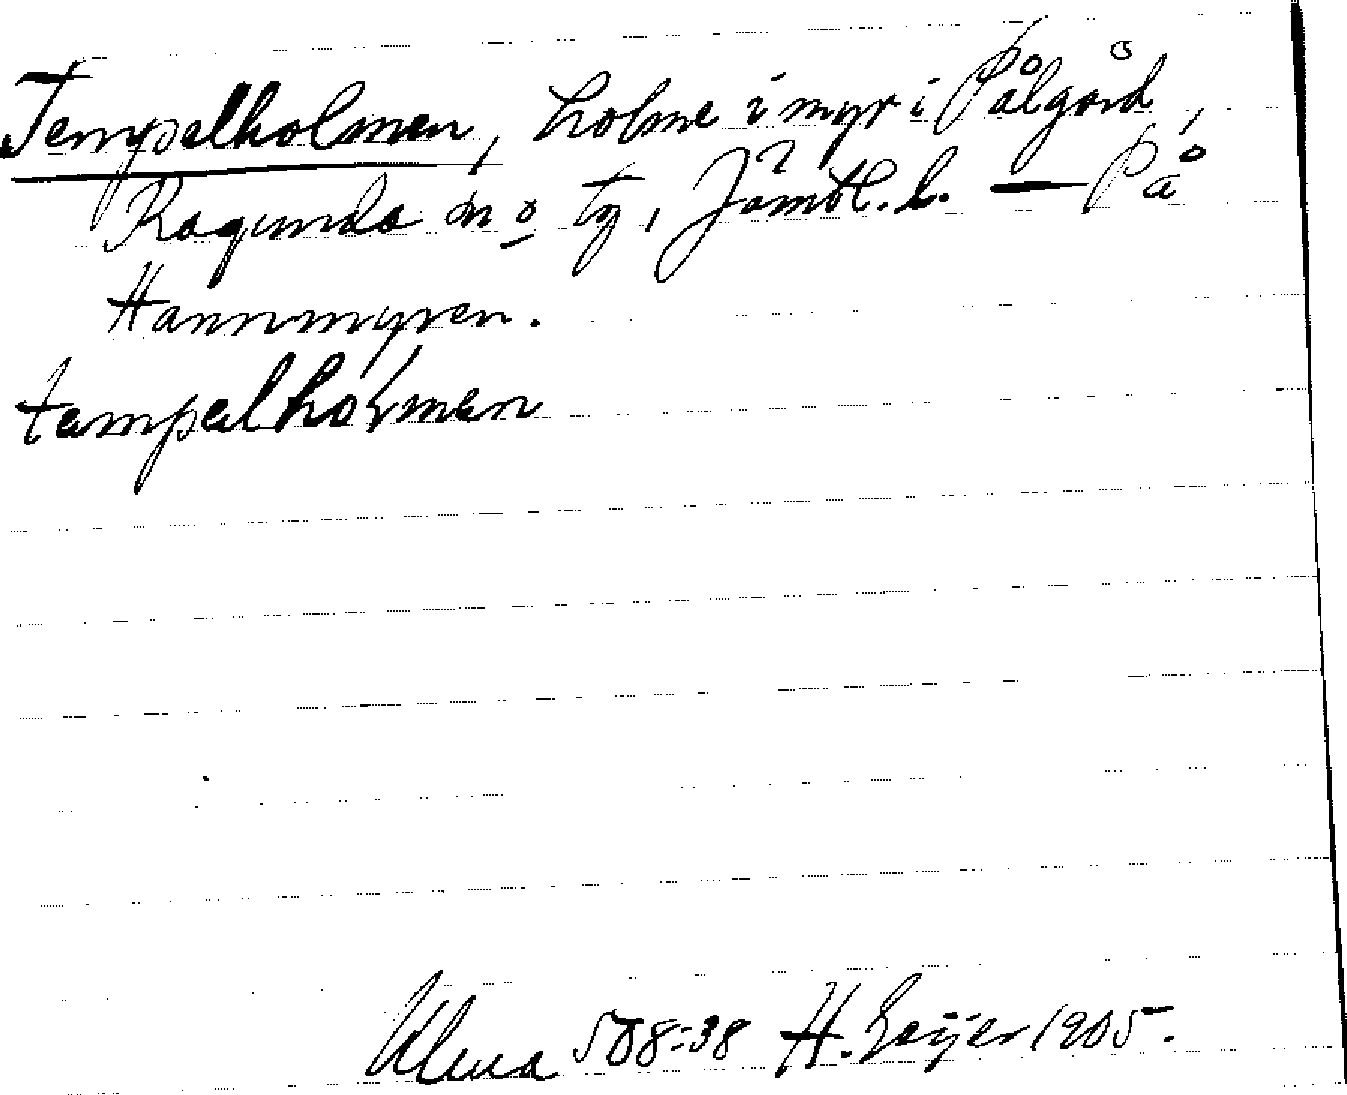 Tempelholmen, holme i myr i Pålgård,
Ragunda sn o tg, Jämtl. l. — På
Hannmyren.
tempelhoļmen
Ulma 508:38 H. Geijer 1905.